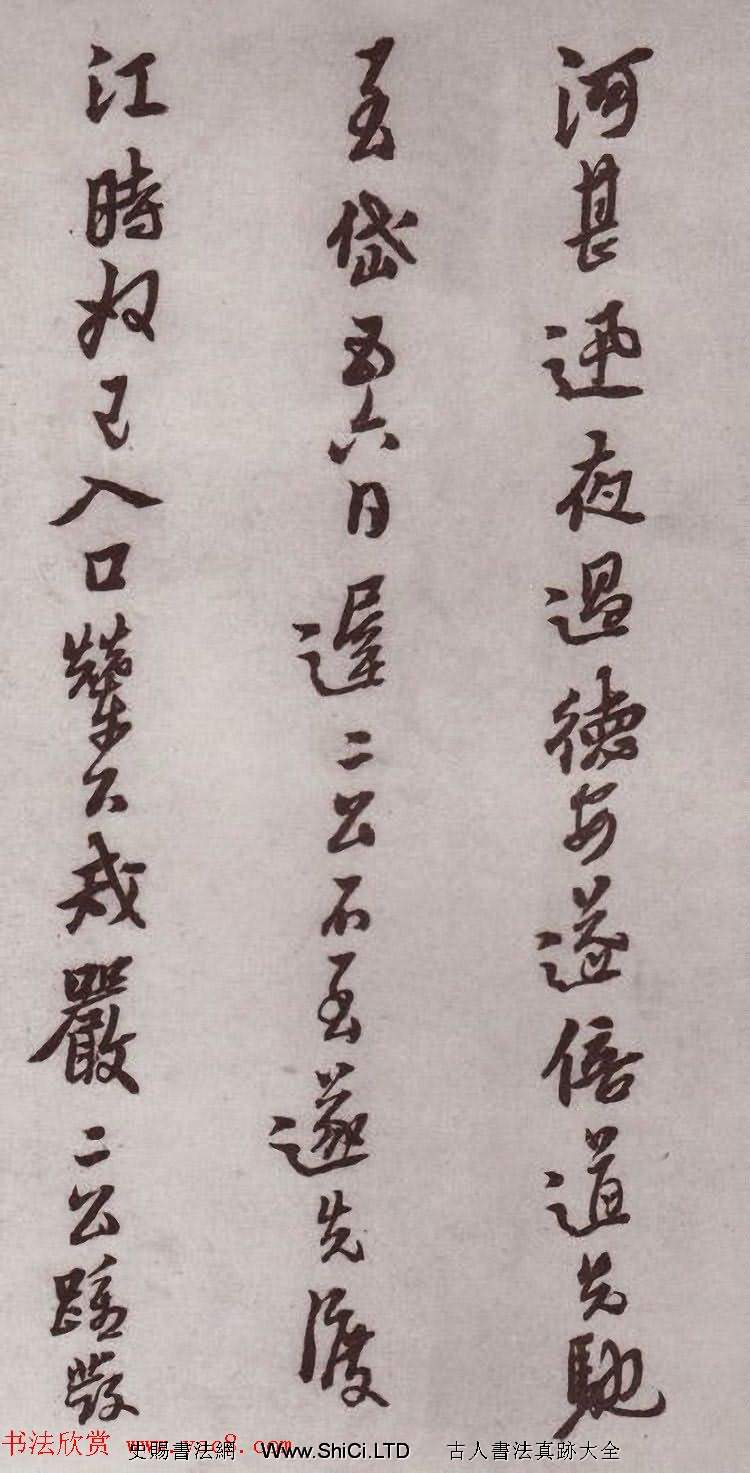 河甚迅夜過德安遂倍道先馳
至岱五六日遲二公不至遂先渡
江時奴已入口輦下戒嚴二公
书法欣赏 www.yac8.com
史賜書法網 Www.ShiCi.LTD 古人書法真跡大全